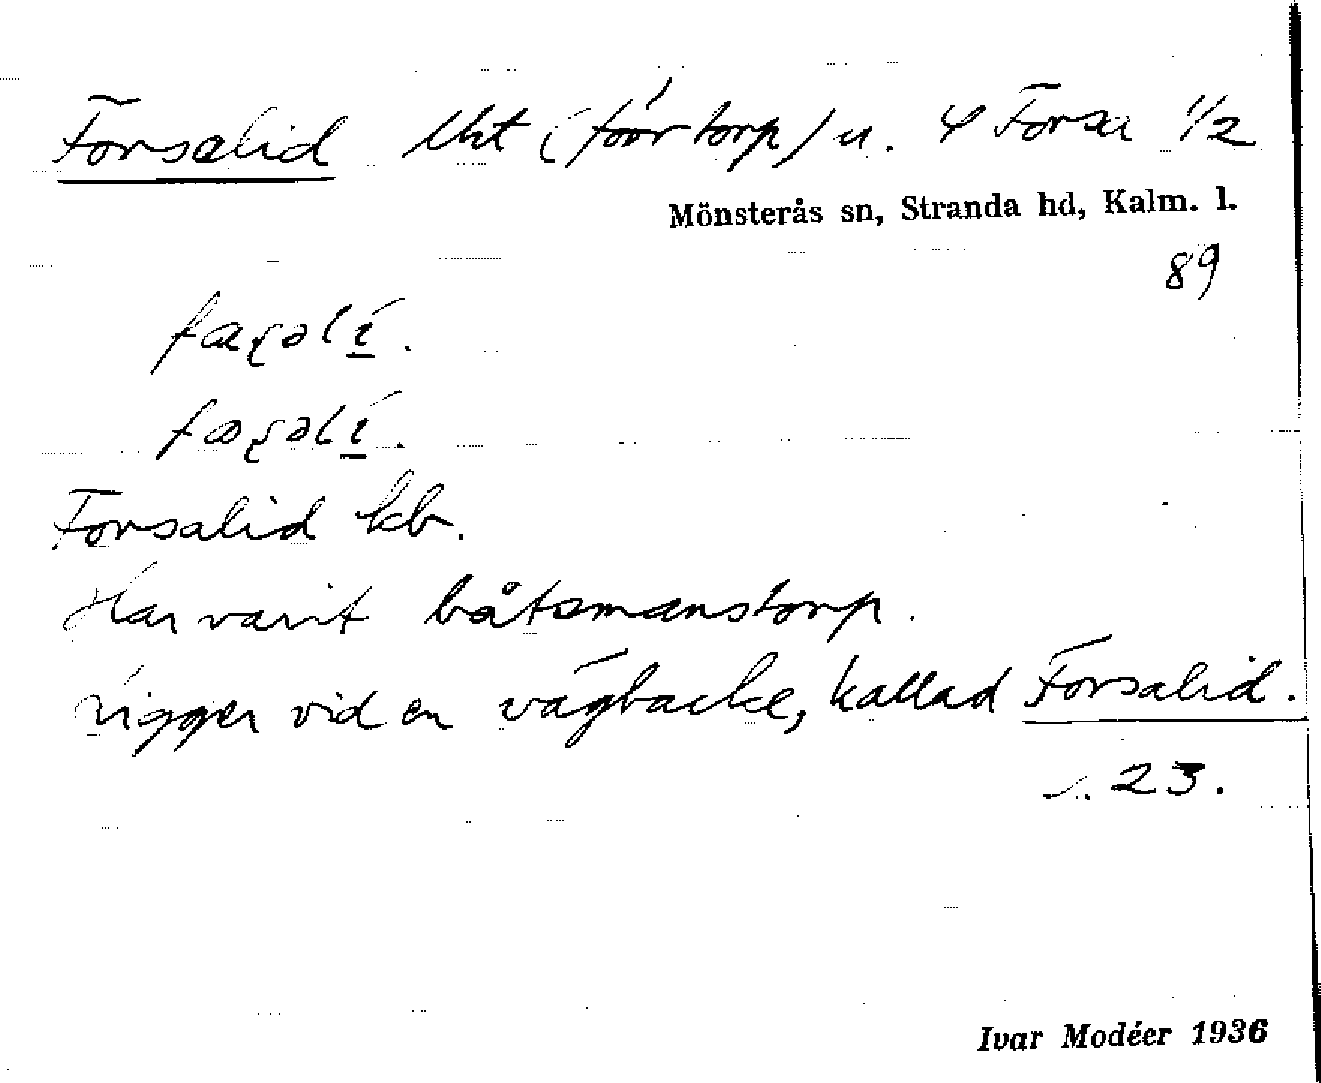 Forsalid lht (förr torp) u. 4 Forsa 1/2
Mönsterås sn, Stranda hd, Kalm. l.
89
Forsalid kb.
Har varit båtsmanstorp.
Ligger vid en vägbacke, kallad Forsalid.
s. 23.
Ivar Modéer 1936